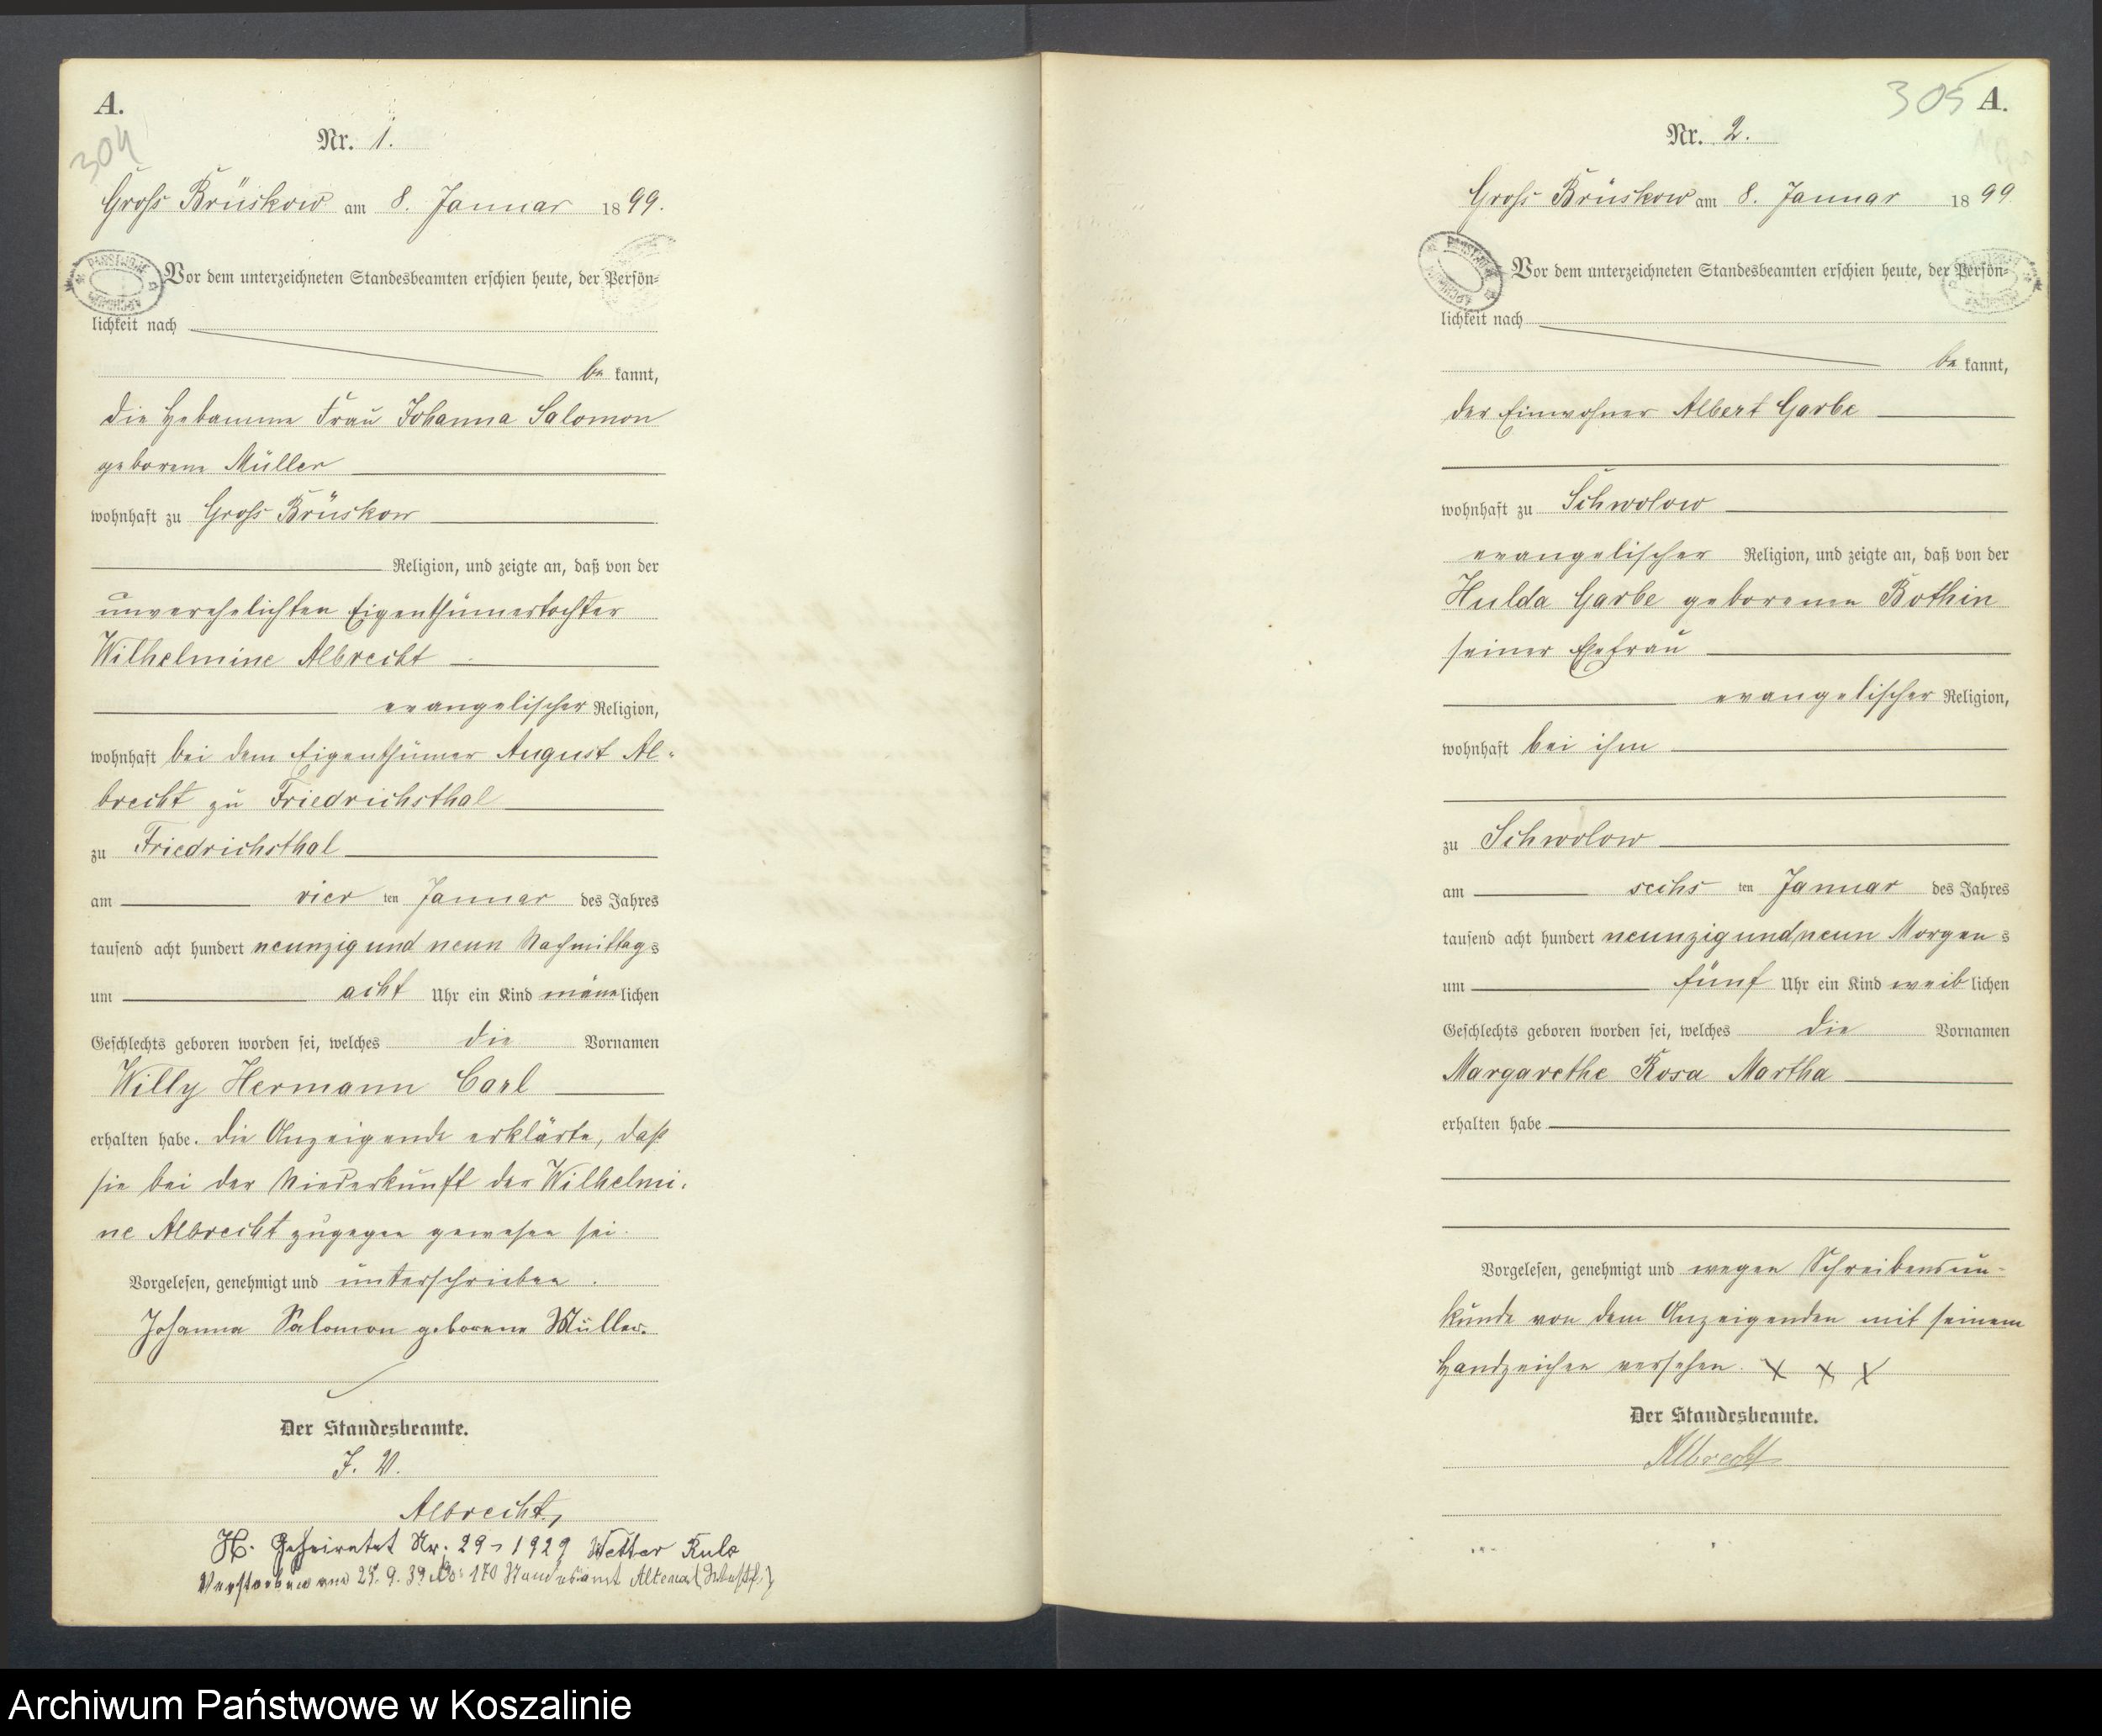 A.
304
Nr. 1.
Gross Brüskow am 8. Januar 1899.
Vor dem unterzeichneten Standesbeamten erschien heute, der Persön-
lichkeit nach
be kannt,
die Hebamme Frau Johanna Salomon
geborene Müller
wohnhaft zu Gross Brüskow
Religion, und zeigte an, daß von der
unverehelichten Eigenthümertochter
Wilhelmine Albrecht
evangelischer Religion,
wohnhaft bei dem Eigenthümer August Al-
brecht zu Friedrichsthal
zu Friedrichsthal
am vier ten Januar des Jahres
tausend acht hundert neunzig und neun Nachmittags
um acht Uhr ein Kind männlichen
Geschlechts geboren worden sei, welches die Vornamen
Willy Hermann Carl
erhalten habe. Die Anzeigende erklärte, daß
sie bei der Niederkunft der Wilhelmi-
ne Albrecht zugegen gewesen sei.
Vorgelesen, genehmigt und unterschrieben.
Johanna Salomon geborene Müller.
Der Standesbeamte.
J. V.
Albrecht,
H. Geheiratet Nr. 29 1929 Wetter Ruhr
Verstorben am 25. 9. 39 No: 170 Standesamt Altena (Westf.)
305 A.
Nr. 2.
Gross Brüskow am 8. Januar 1899
Vor dem unterzeichneten Standesbeamten erschien heute, der Persön-
lichkeit nach
be kannt,
der Einwohner Albert Garbe
wohnhaft zu Schwolow
evangelischer Religion, und zeigte an, daß von der
Hulda Garbe geborenen Bothin
seiner Ehefrau
evangelischer Religion,
wohnhaft bei ihm
zu Schwolow
am sechs ten Januar des Jahres
tausend acht hundert neunzig und neun Morgens
um fünf Uhr ein Kind weiblichen
Geschlechts geboren worden sei, welches die Vornamen
Margarethe Rosa Martha
erhalten habe
Vorgelesen, genehmigt und wegen Schreibensun-
kunde von dem Anzeigenden mit seinem
Handzeichen versehen. X X X
Der Standesbeamte.
Albrecht
Archiwum Państwowe w Koszalinie